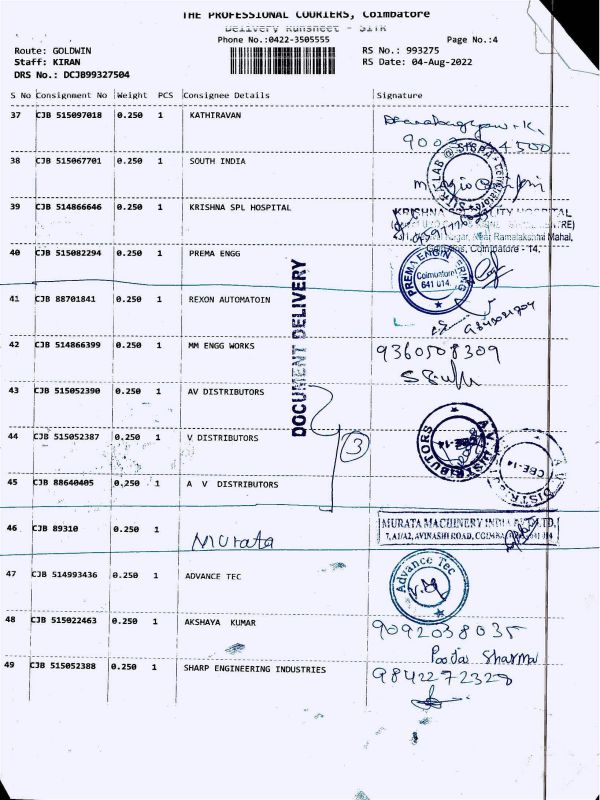 THE PROFESSIONAL COURIERS, Coimbatore
Delivery Runsheet - SITR
Phone No.:0422-3505555 Page No.:4
Route: GOLDWIN RS No.: 993275
Staff: KIRAN RS Date: 04-Aug-2022
DRS No.: DCJB99327504
S No Consignment No Weight PCS Consignee Details Signature
37 CJB 515097018 0.250 1 KATHIRAVAN
38 CJB 515067701 0.250 1 SOUTH INDIA
39 CJB 514866646 0.250 1 KRISHNA SPL HOSPITAL
KRISHNA SPECIALITY HOSPITAL
Near Ramalakshmi Mahal,
Coimbatore - 14.
40 CJB 515082294 0.250 1 PREMA ENGG
PREMA ENGINEERING
Coimbatore
641 014.
41 CJB 88701841 0.250 1 REXON AUTOMATOIN
DOCUMENT DELIVERY
42 CJB 514866399 0.250 1 MM ENGG WORKS
9360508309
43 CJB 515052390 0.250 1 AV DISTRIBUTORS
44 CJB 515052387 0.250 1 V DISTRIBUTORS
3
A.V. DISTRIBUTORS
CBE-14
45 CJB 88640405 0.250 1 A V DISTRIBUTORS
46 CJB 89310 0.250 1 Murata
MURATA MACHINERY INDIA PVT LTD.
7, A1/A2, AVINASHI ROAD, COIMBATORE 641 014
47 CJB 514993436 0.250 1 ADVANCE TEC
Advance Tec
48 CJB 515022463 0.250 1 AKSHAYA KUMAR
9092038035
Pooja Sharma
49 CJB 515052388 0.250 1 SHARP ENGINEERING INDUSTRIES
9842272328